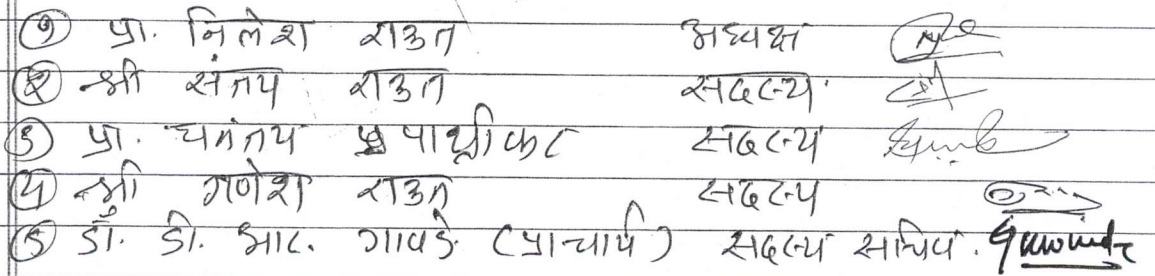 १ प्रा. निलेश राऊत अध्यक्ष
२ श्री संजय राऊत सदस्य
३ प्रा. धनंजय पाथ्रीकर सदस्य
४ श्री गणेश राऊत सदस्य
५ डॉ. डी. आर. गावडे (प्राचार्य) सदस्य सचिव.